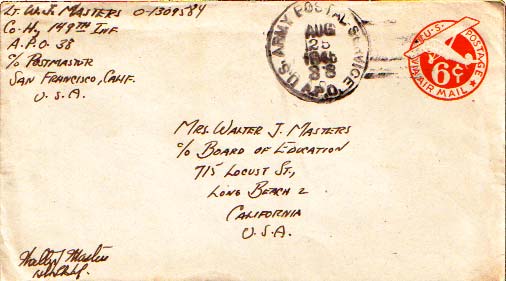 Lt. W. J. Masters O-1309584
Co. H, 149th Inf.
A.P.O. 38
℅ Postmaster
San Francisco, Calif.
U.S.A.
U.S. ARMY POSTAL SERVICE
AUG
25
A.P.O.
U.S. POSTAGE
6¢
VIA AIR MAIL
Mrs. Walter J. Masters
℅ Board of Education
715 Locust St.,
Long Beach 2
California
U.S.A.
Wally J Masters